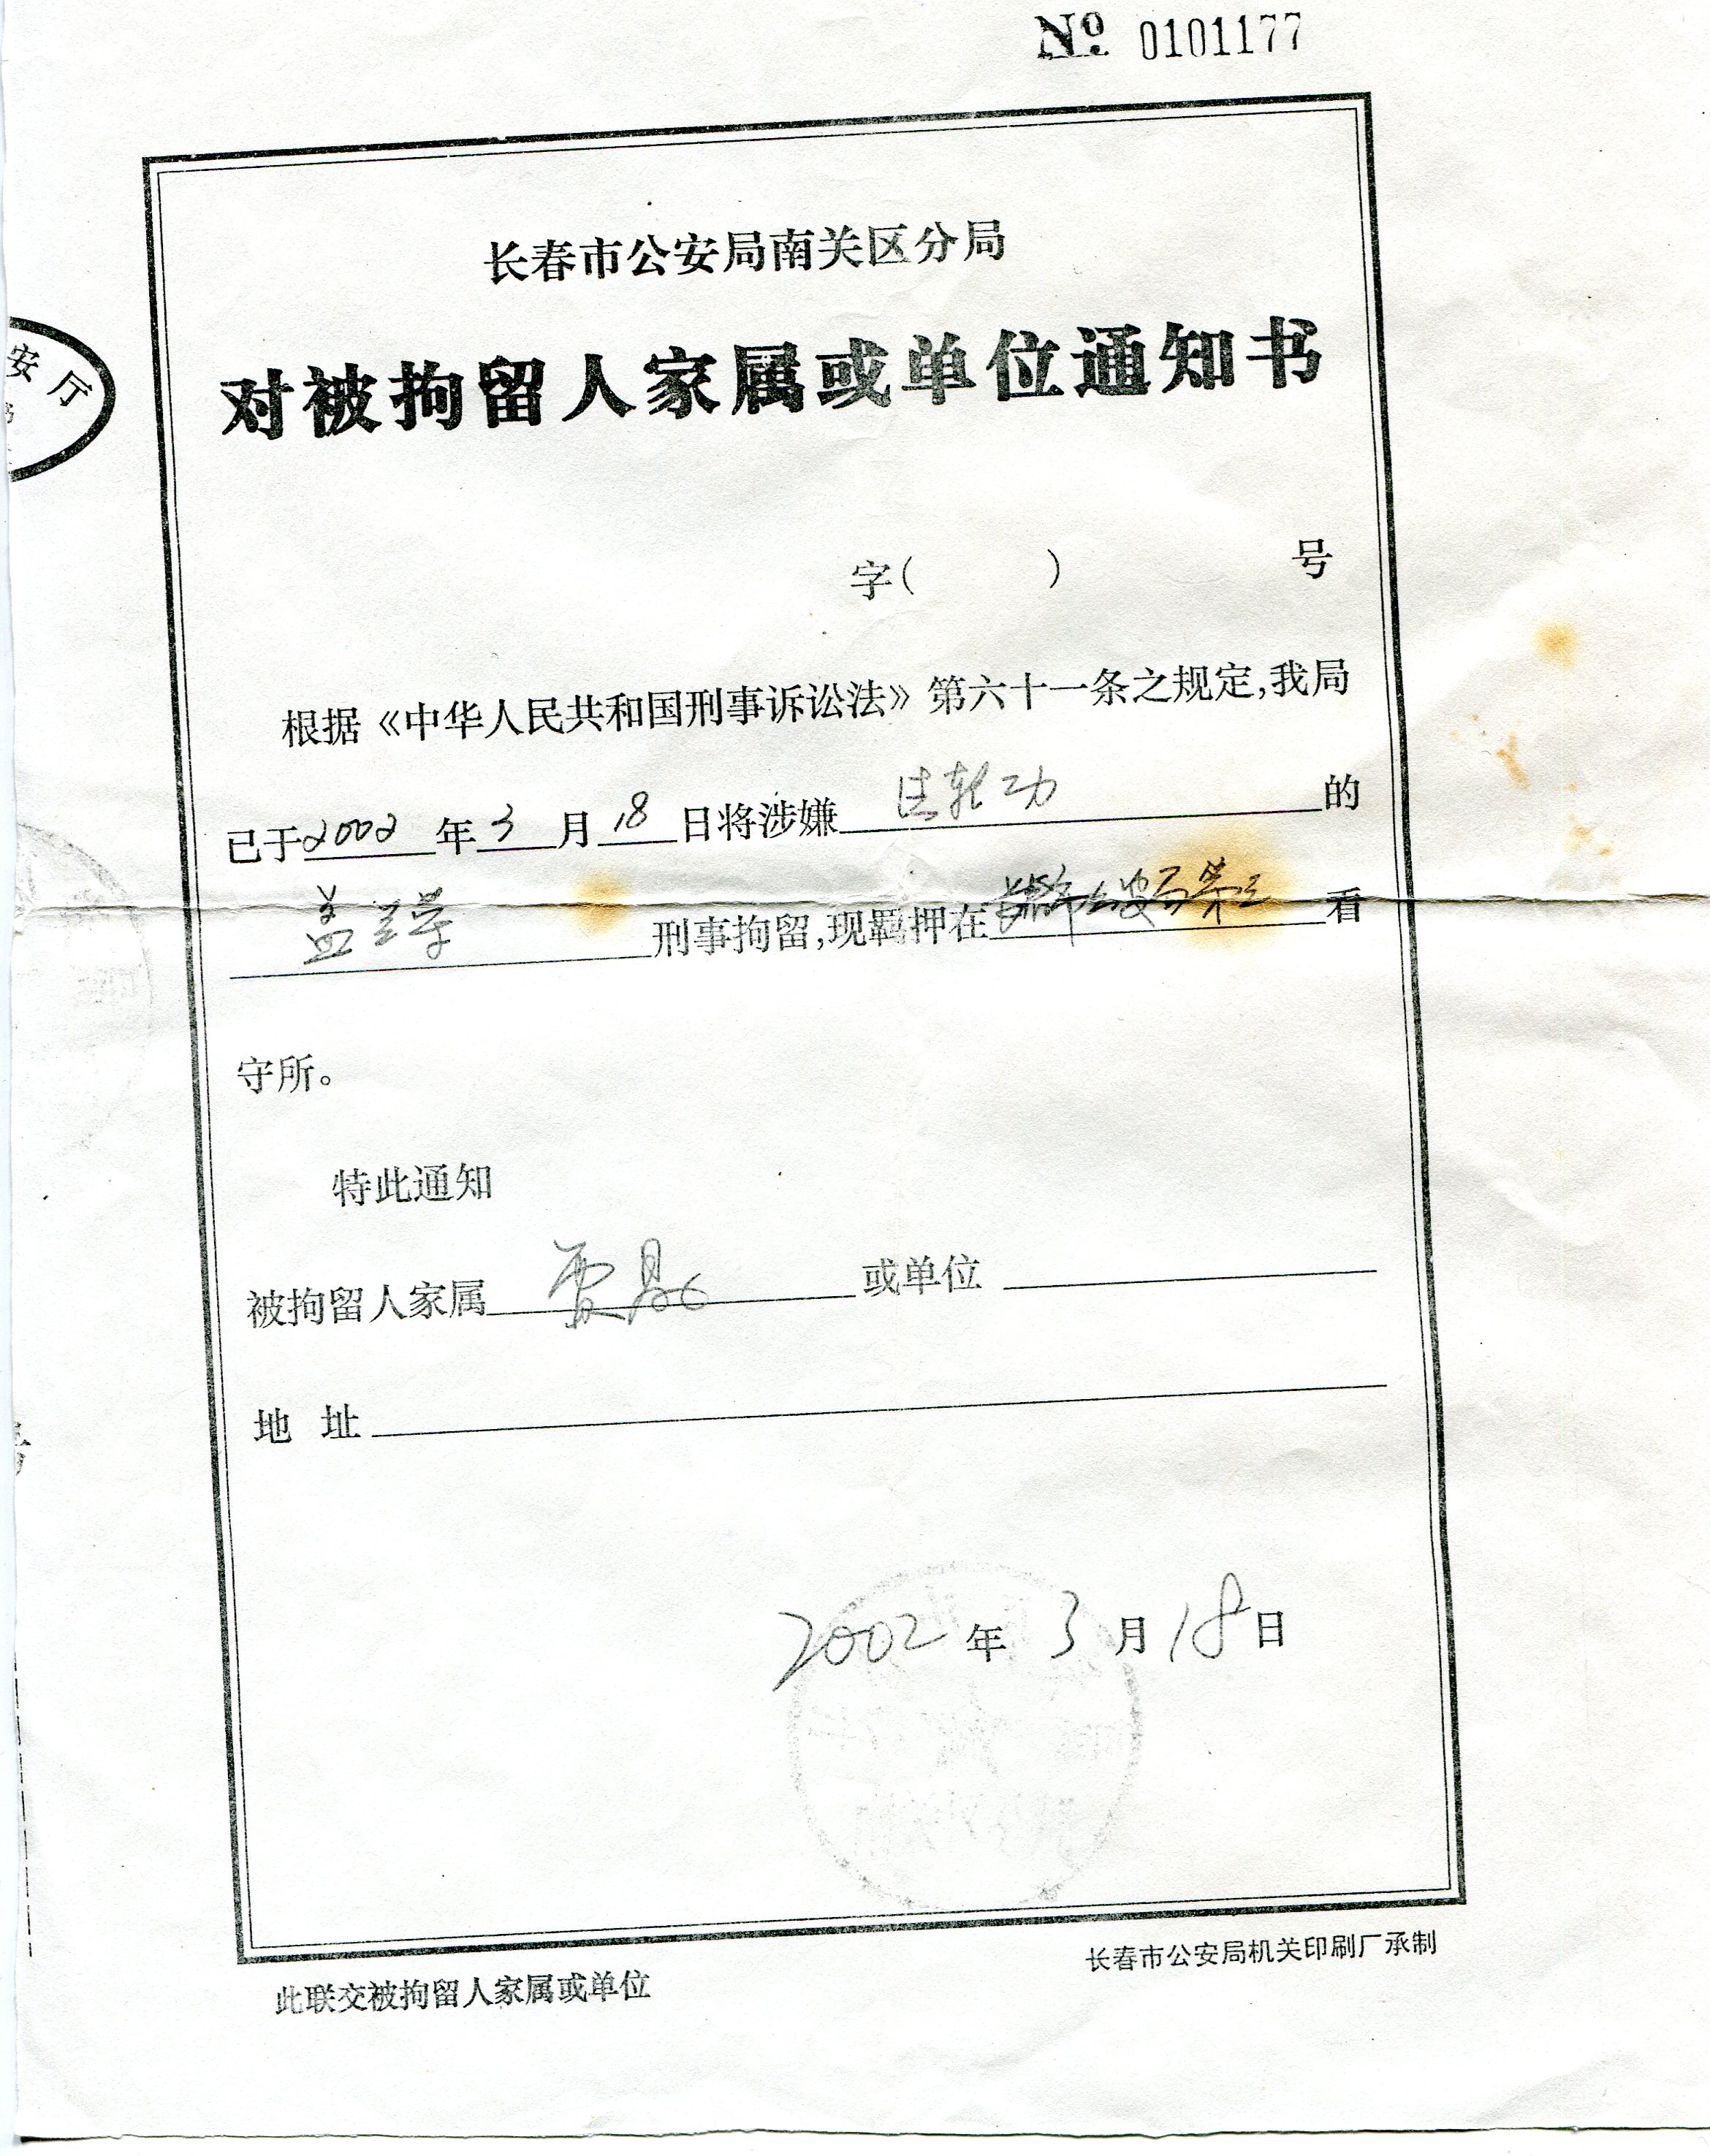 № 0101177
长春市公安局南关区分局
对被拘留人家属或单位通知书
安厅
字( ) 号
根据《中华人民共和国刑事诉讼法》第六十一条之规定,我局
已于2002年3月18日将涉嫌法轮功的
盖 刑事拘留,现羁押在长春市公安局第三看
守所。
特此通知
被拘留人家属 贾 或单位
地 址
2002年3月18日
此联交被拘留人家属或单位
长春市公安局机关印刷厂承制